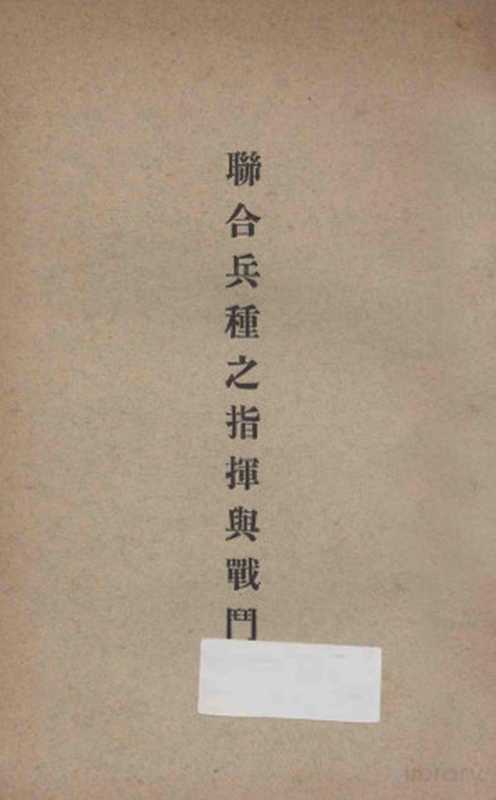 聯合兵種之指揮與戰鬥